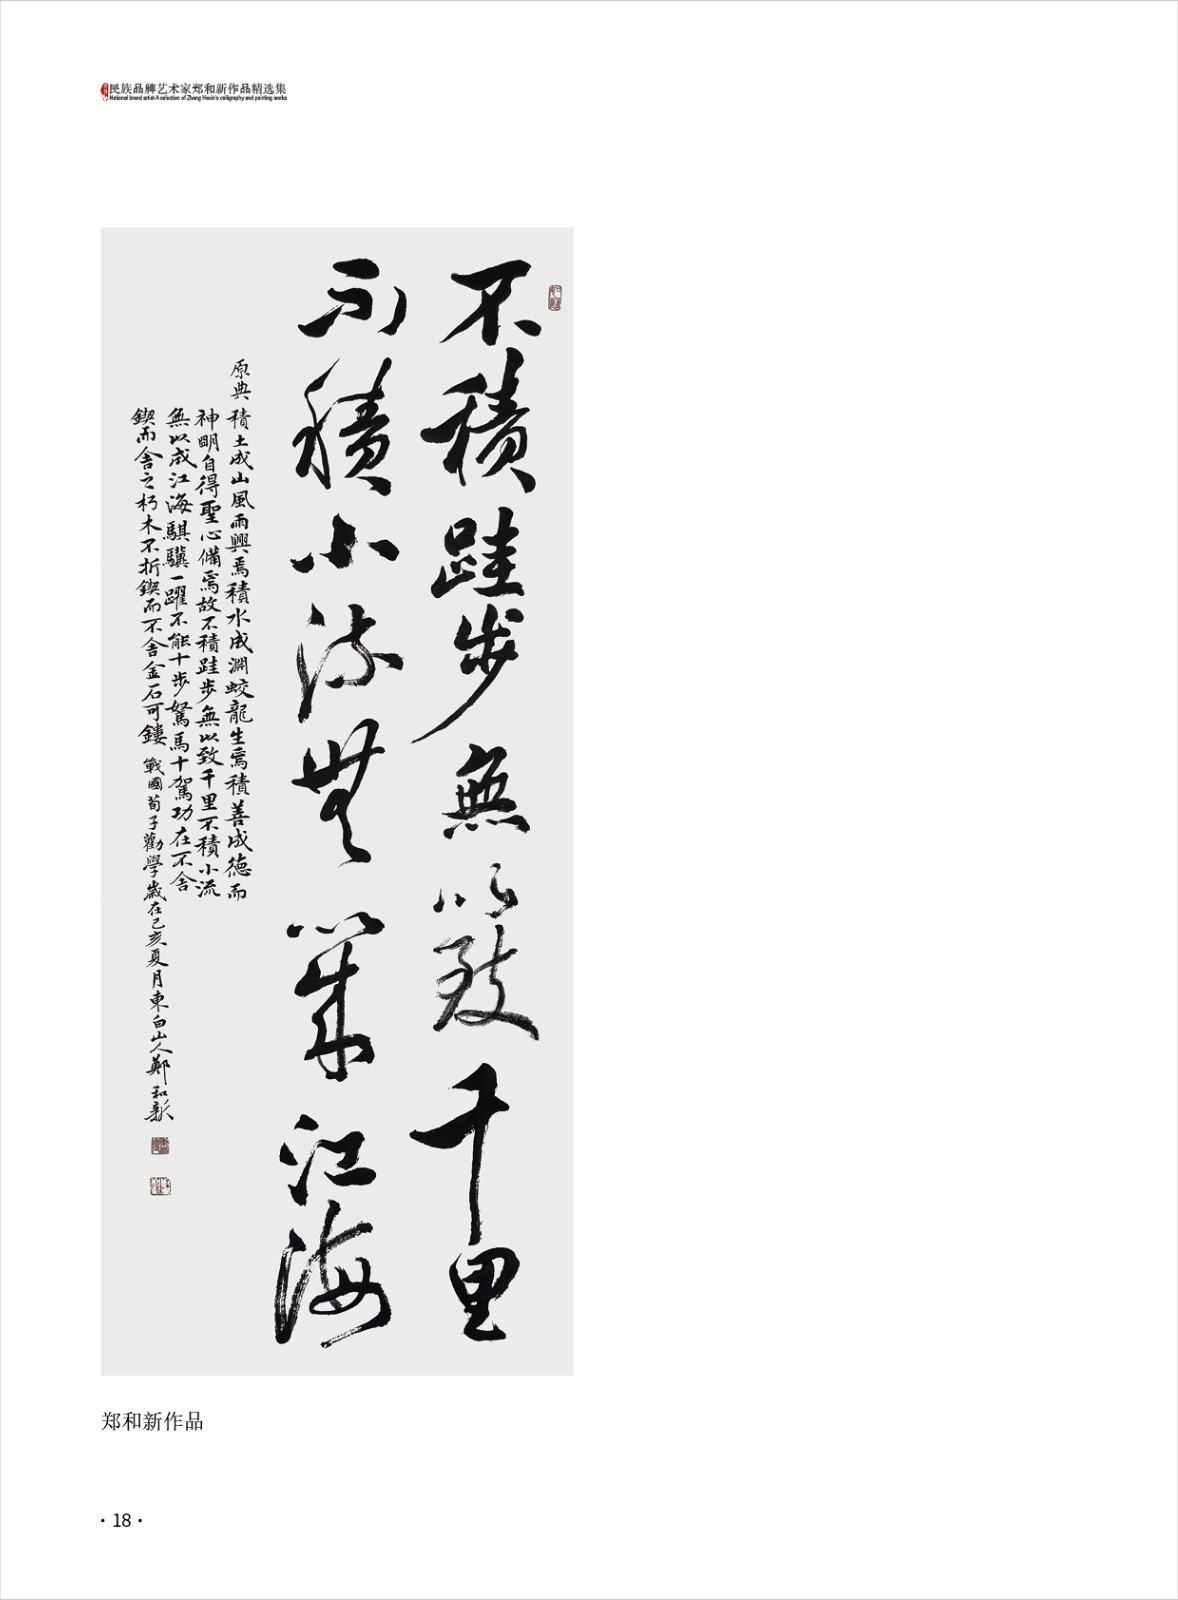 民族品牌艺术家郑和新作品精选集
National brand artist-A selection of Zheng Hexin's calligraphy and painting works
不積跬步無以致千里
不積小流無以成江海
原典 積土成山風雨興焉積水成淵蛟龍生焉積善成德而
神明自得聖心備焉故不積跬步無以致千里不積小流
無以成江海騏驥一躍不能十步駑馬十駕功在不舍
鍥而舍之朽木不折鍥而不舍金石可鏤 戰國荀子勸學歲在己亥夏月東白山人鄭和新
郑和新作品
·18·